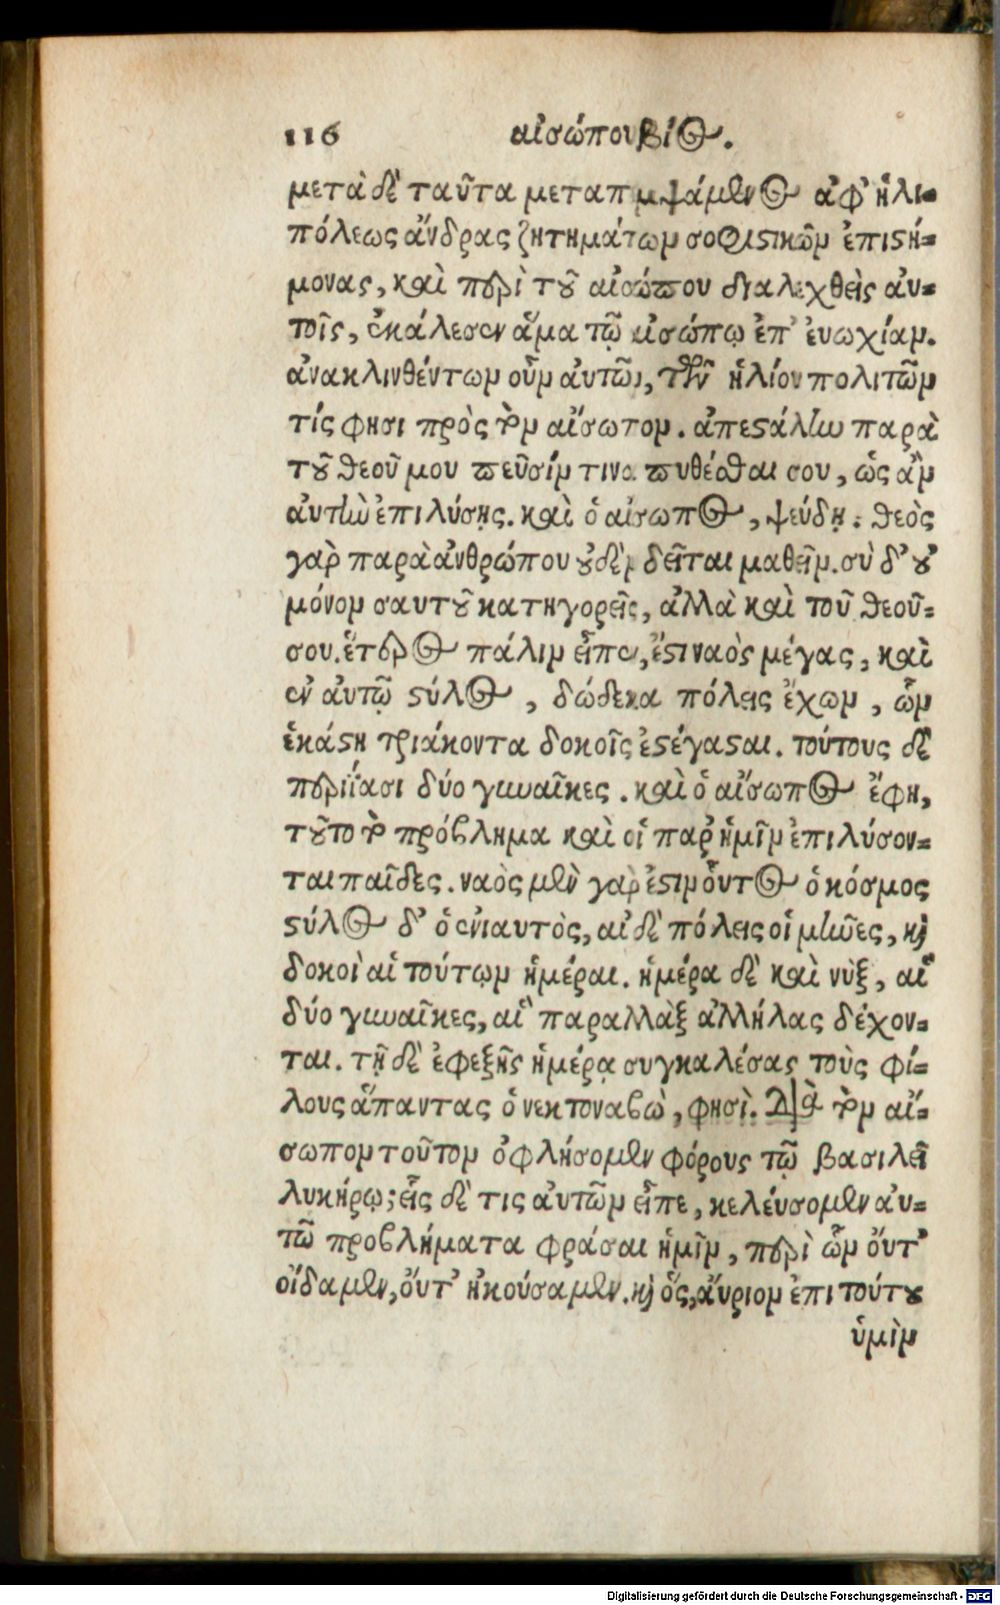 116 αἰσώπου βίος.
μετὰ δὲ ταῦτα μεταπεμψάμενος ἀφ' ἡλι-
πόλεως ἄνδρας ζητημάτων σοφιστικῶν ἐπιστή-
μονας, καὶ περὶ τοῦ αἰσώπου διαλεχθεὶς αὐ-
τοῖς, ἐκάλεσεν ἅμα τῷ αἰσώπῳ ἐπ' ἐυωχίαν.
ἀνακλινθέντων οὖν αὐτῶν, τῶν ἡλίου πολιτῶν
τίς φησι πρὸς τὸν αἴσωπον. ἀπεστάλην παρὰ
τοῦ θεοῦ μου πεῦσίν τινα πυθέσθαι σου, ὡς ἂν
αὐτὴν ἐπιλύσῃς. καὶ ὁ αἰσωπος, ψεύδῃ. θεὸς
γαρ παρὰ ἀνθρώπου οὐδὲν δεῖται μαθεῖν. σὺ δ' οὐ
μόνον σαυτοῦ κατηγορεῖς, ἀλλὰ καὶ τοῦ θεοῦ-
σου. ἕτερος πάλιν εἶπεν, ἔστι ναὸς μέγας, καὶ
ἐν αὐτῷ στύλος, δώδεκα πόλεις ἔχων, ὧν
ἑκάστη τριάκοντα δοκοῖς ἐστέγασται. τούτους δὲ
περιΐασι δύο γυναῖκες. καὶ ὁ αἴσωπος ἔφη,
τοῦτο τὸ πρόβλημα καὶ οἱ παρ' ἡμῖν ἐπιλύσον-
ται παῖδες. ναὸς μὲν γαρ ἔστιν οὗτος ὁ κόσμος
στύλος δ' ὁ ἐνιαυτὸς, αἱ δὲ πόλεις οἱ μῆνες, καὶ
δοκοὶ αἱ τούτων ἡμέραι. ἡμέρα δὲ καὶ νὺξ, αἱ
δύο γυναῖκες, αἳ παραλλὰξ ἀλλήλας δέχον-
ται. τῇ δὲ ἐφεξῆς ἡμέρᾳ συγκαλέσας τοὺς φί-
λους ἅπαντας ὁ νεκτοναβὼ, φησὶ. Διὰ τὸν αἴ-
σωπον τοῦτον ὀφλήσομεν φόρους τῷ βασιλεῖ
λυκήρῳ; εἷς δὲ τις αὐτῶν εἶπε, κελέυσομεν αὐ-
τῶ προβλήματα φράσαι ἡμῖν, περὶ ὧν ὄυτ'
οἴδαμεν, ὄυτ' ἠκούσαμεν. καὶ ὃς, ἄυριον ἐπι τούτου
ὑμὶν
Digitalisierung gefördert durch die Deutsche Forschungsgemeinschaft - DFG